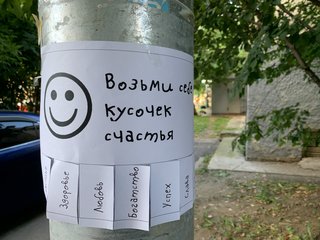 Возьми себе
кусочек
счастья
Здоровье
Любовь
Богатство
Успех
Слава